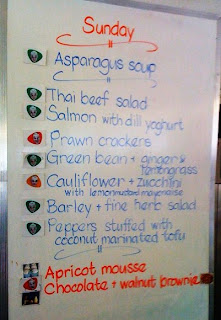 Sunday
Asparagus soup
Thai beef salad
Salmon with dill yoghurt
Prawn crackers
Green bean + ginger &
lemongrass
Cauliflower + zucchini
with lemon mustard mayonaise
Barley + fine herb salad
Peppers stuffed with
coconut marinated tofu
Apricot mousse
Chocolate + walnut brownie